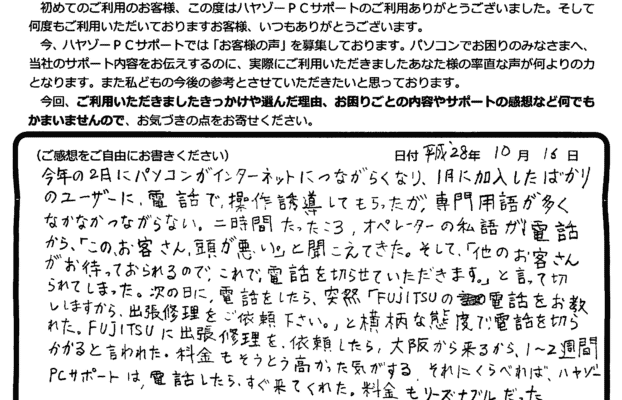 初めてのご利用のお客様、この度はハヤゾーPCサポートのご利用ありがとうございました。そして
何度もご利用いただいておりますお客様、いつもありがとうございます。
今、ハヤゾーPCサポートでは「お客様の声」を募集しております。パソコンでお困りのみなさまへ、
当社のサポート内容をお伝えするのに、実際にご利用いただきましたあなた様の率直な声が何よりの力
となります。また私どもの今後の参考とさせていただきたいと思っております。
今回、ご利用いただきましたきっかけや選んだ理由、お困りごとの内容やサポートの感想など何でも
かまいませんので、お気づきの点をお寄せください。
(ご感想をご自由にお書きください) 日付 平成28年 10月 16日
今年の2月にパソコンがインターネットにつながらくなり、1月に加入したばかり
のユーザーに、電話で、操作誘導してもらったが、専門用語が多く
なかなかつながらない。二時間たったころ、オペレーターの私語が電話
から、「この、お客さん、頭が悪い。」と聞こえてきた。そして、「他のお客さん
がお待っておられるので、これで、電話を切らせていただきます。」と言って切
られてしまった。次の日に、電話をしたら、突然「FUJITSUの電話をお教
えしますから、出張修理をご依頼下さい。」と横柄な態度で電話を切ら
れた。FUJITSUに出張修理を、依頼したら、大阪から来るから、1〜2週間
かかると言われた。料金もそうとう高かった気がする。それにくらべれば、ハヤゾー
PCサポートは、電話したら、すぐ来てくれた。料金もリーズナブルだった